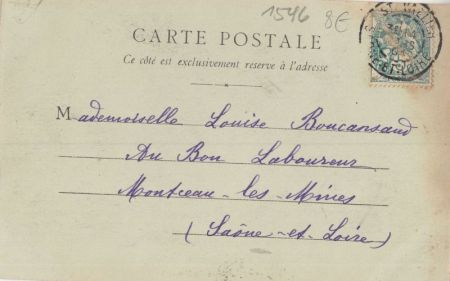 1546 8€
CARTE POSTALE
Ce côté est exclusivement réservé à l'adresse
Mademoiselle Louise Boucansaud
Au Bon Laboureur
Montceau-les-Mines
(Saône-et-Loire)
ST VALLIER
ET-LOIRE